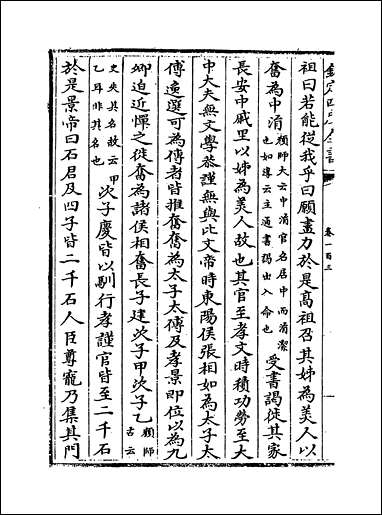 欽定四庫全書
卷一百三
祖曰若能從我乎曰願盡力於是髙祖召其姊為美人以
奮為中涓顔師大云中涓官名居中而涓潔也如淳云主通書謁出入命也受書謁徙其家
長安中戚里以姊為美人故也其官至孝文時積功勞至大
中大夫無文學恭謹無與比文帝時東陽侯張相如為太子太
傅免選可為傅者皆推奮奮為太子太傅及孝景即位以為九
卿迫近憚之徙奮為諸侯相奮長子建次子甲次子乙顔師古云
史失其名故云甲乙耳非其名也次子慶皆以馴行孝謹官皆至二千石
於是景帝曰石君及四子皆二千石人臣尊寵乃集其門